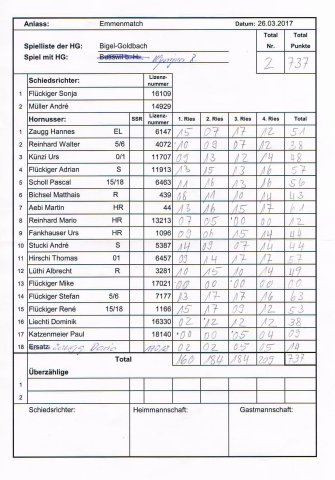 Anlass: Emmenmatch Datum: 26.03.2017
Spielliste der HG: Bigel-Goldbach Total Nr. 2 Total Punkte 737
Spiel mit HG: R
Schiedsrichter: Lizenz-nummer
1 Flückiger Sonja 16109
2 Müller André 14929
Hornusser: SSR Lizenz-nummer 1. Ries 2. Ries 3. Ries 4. Ries Total
1 Zaugg Hannes EL 6147 15 07 17 12 51
2 Reinhard Walter 5/6 4072 10 09 07 12 38
3 Künzi Urs 0/1 11707 09 13 12 14 48
4 Flückiger Adrian S 11913 13 15 13 16 57
5 Scholl Pascal 15/18 6463 11 16 13 16 56
6 Bichsel Matthais R 439 08 11 10 14 43
7 Aebi Martin HR 44 13 16 15 17 61
8 Reinhard Mario HR 13213 07 05 00 00 12
9 Fankhauser Urs HR 1096 09 06 15 14 44
10 Stucki André S 5387 14 09 07 14 44
11 Hirschi Thomas 01 6457 09 14 17 17 57
12 Lüthi Albrecht R 3281 10 15 10 14 49
13 Flückiger Mike 17021 00 00 00 00 00
14 Flückiger Stefan 5/6 7177 13 17 17 16 63
15 Flückiger René 15/18 1166 15 17 09 12 53
16 Liechti Dominik 16330 02 12 12 12 38
17 Katzenmeier Paul 18140 00 00 05 04 09
18 Ersatz 02 02 05 15 14
Total 160 184 184 209 737
Überzählige
1
2
Schiedsrichter: Heimmannschaft: Gastmannschaft: